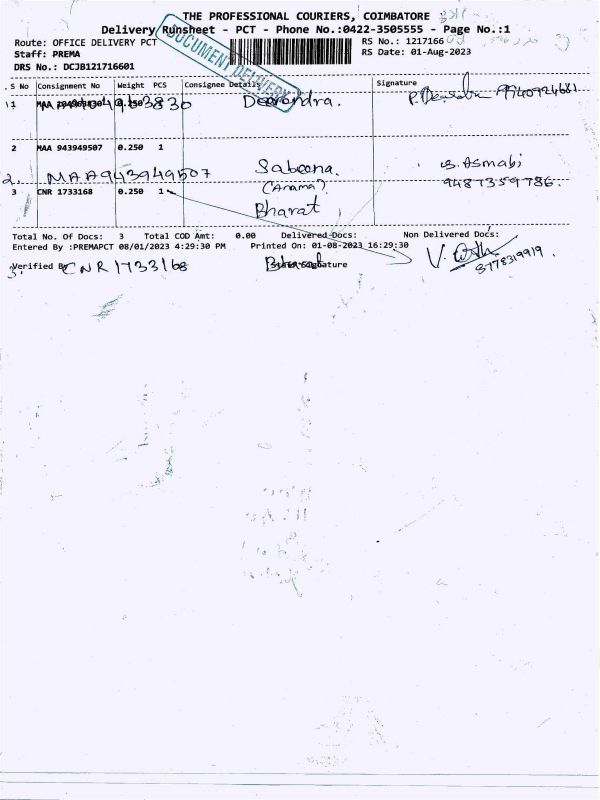 THE PROFESSIONAL COURIERS, COIMBATORE
Delivery Runsheet - PCT - Phone No.:0422-3505555 - Page No.:1
Route: OFFICE DELIVERY PCT
RS No.: 1217166
Staff: PREMA
RS Date: 01-Aug-2023
DRS No.: DCJB121716601
DOCUMENT DELIVERY
S No Consignment No Weight PCS Consignee Details Signature
1 0.250
9940924681
2 MAA 943949507 0.250 1
2. MAA943949507 Sabeena. S. Asmabi
(Amma) 9487359786.
3 CNR 1733168 0.250 1
Bharat
Total No. Of Docs: 3 Total COD Amt: 0.00 Delivered Docs: Non Delivered Docs:
Entered By :PREMAPCT 08/01/2023 4:29:30 PM Printed On: 01-08-2023 16:29:30
Verified By
3. CNR 1733168 Signature
8778319919.